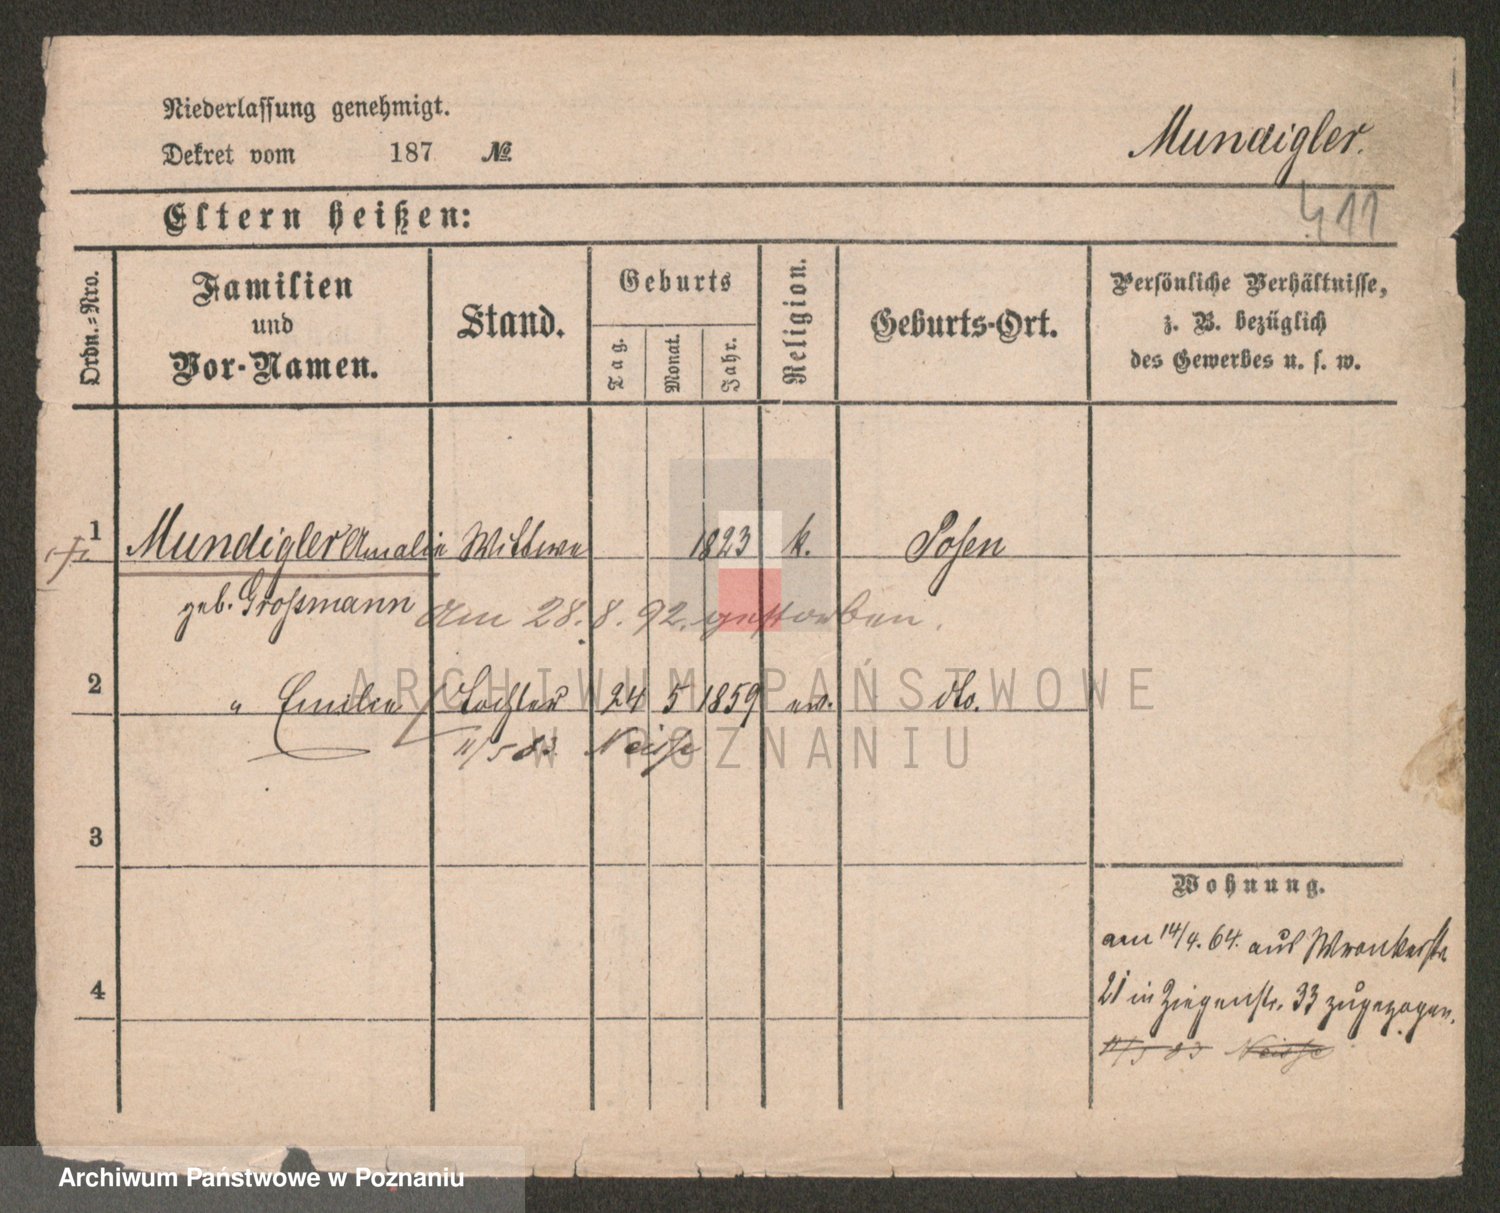 Niederlassung genehmigt.
Dekret vom 187 №
Mundigler.
411
Eltern heißen:
Ordn.-Nro.
Familien
und
Vor-Namen.
Stand.
Geburts
Tag.
Monat.
Jahr.
Religion.
Geburts-Ort.
Persönliche Verhältnisse,
z. B. bezüglich
des Gewerbes u. s. w.
1 Mundigler Amalie Wittwe 1823 k. Posen
geb. Großmann
Am 28.8.92. gestorben.
2 " Emilie Tochter 24 5 1859 ev. do.
11/5 83. Neisse
3
4
Wohnung.
am 14/4. 64. aus Wronkerstr.
21 in Ziegenstr. 33 zugezogen.
11/5 83 Neisse
ARCHIWUM PAŃSTWOWE
W POZNANIU
Archiwum Państwowe w Poznaniu